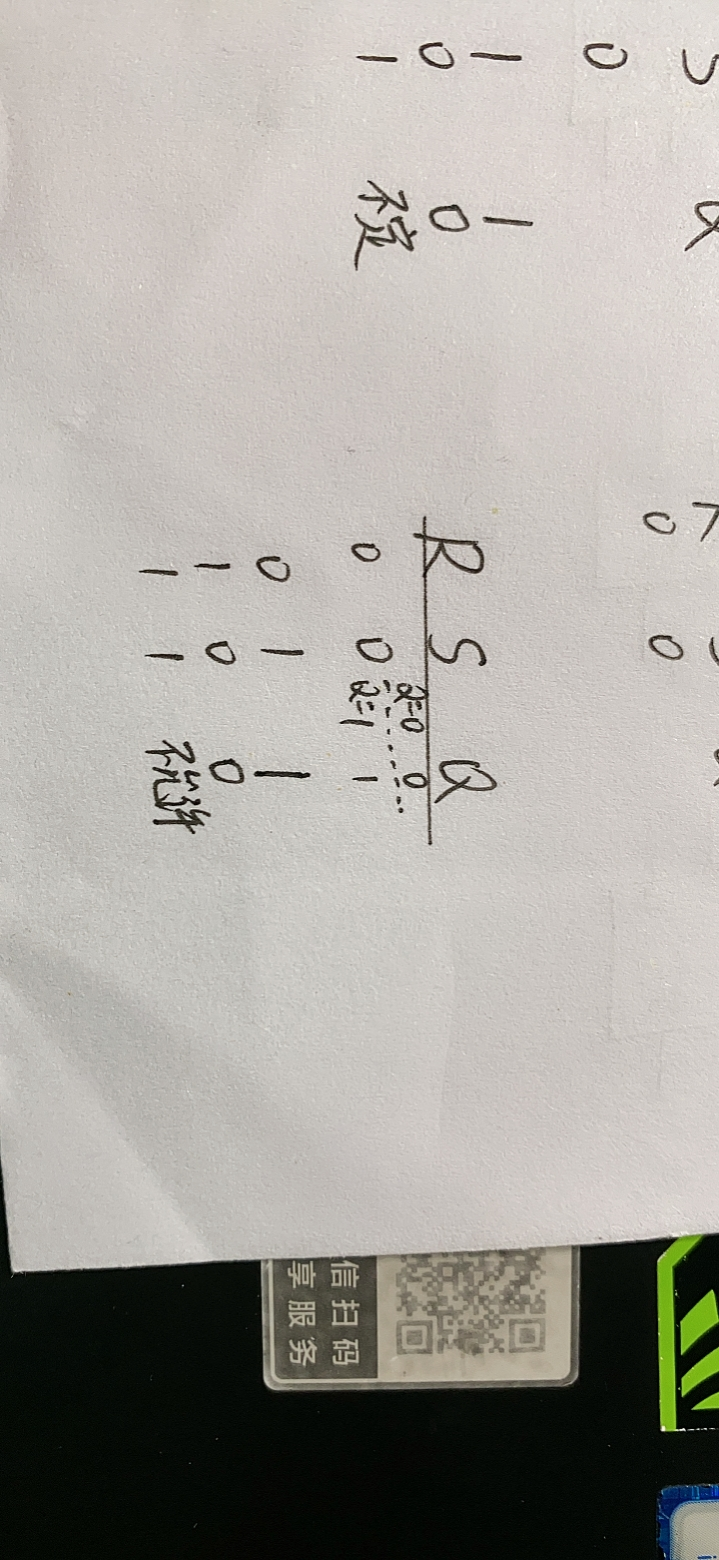 S Q
0
1 1
0 0
1 不定
0 0
R S Q
Q=0 0
0 0 Q=1 1
0 1 1
1 0 0
1 1 不允许
信扫码
享服务